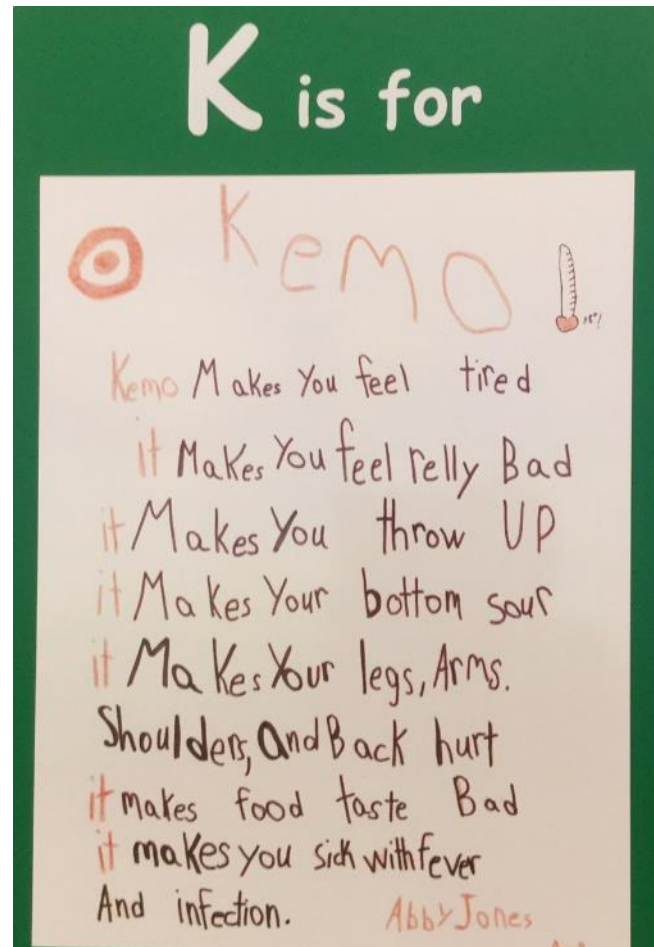 K is for
Kemo
Kemo Makes You feel tired
it Makes You feel relly Bad
it Makes You throw UP
it Makes Your bottom sour
it Makes Your legs, Arms.
Shoulders, And Back hurt
it makes food taste Bad
it makes you sick with fever
And infection. Abby Jones